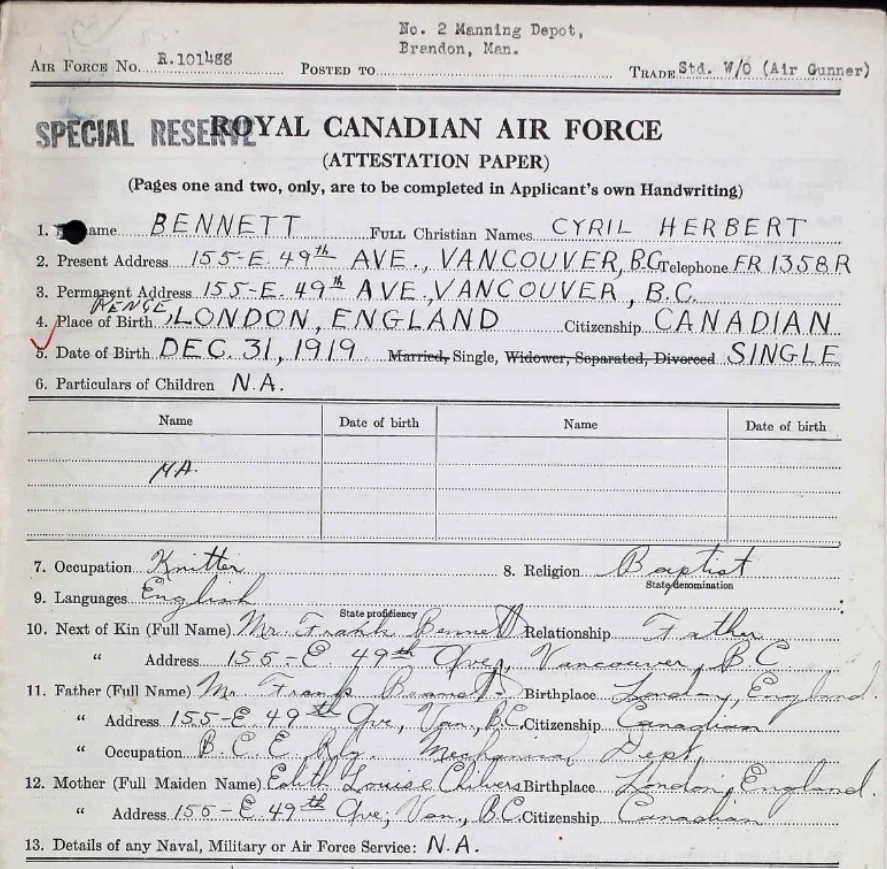 No. 2 Manning Depot,
Brandon, Man.
AIR FORCE NO. R.101488 POSTED TO TRADE Std. W/O (Air Gunner)
SPECIAL RESERVE
ROYAL CANADIAN AIR FORCE
(ATTESTATION PAPER)
(Pages one and two, only, are to be completed in Applicant's own Handwriting)
1. ame BENNETT FULL Christian Names CYRIL HERBERT
2. Present Address 155-E. 49th AVE., VANCOUVER, B.C. Telephone FR 1358R
3. Permanent Address 155-E. 49th AVE., VANCOUVER, B.C.
PENGE,
4. Place of Birth LONDON, ENGLAND Citizenship CANADIAN
5. Date of Birth DEC. 31, 1919 Married, Single, Widower, Separated, Divorced SINGLE
6. Particulars of Children N.A.
Name Date of birth Name Date of birth
N.A.
7. Occupation Knitter 8. Religion Baptist
State denomination
9. Languages English
State proficiency
10. Next of Kin (Full Name) Mr. Frank Bennett Relationship Father
" Address 155-E. 49th Ave, Vancouver, B.C
11. Father (Full Name) Mr Frank Bennett Birthplace London, England.
" Address 155-E 49th Ave, Van, B.C. Citizenship Canadian
" Occupation B.C.E. Rly. Mechanical Dept,
12. Mother (Full Maiden Name) Edith Louise Chilvers Birthplace London, England.
" Address 155-E 49th Ave, Van., B.C. Citizenship Canadian
13. Details of any Naval, Military or Air Force Service: N.A.